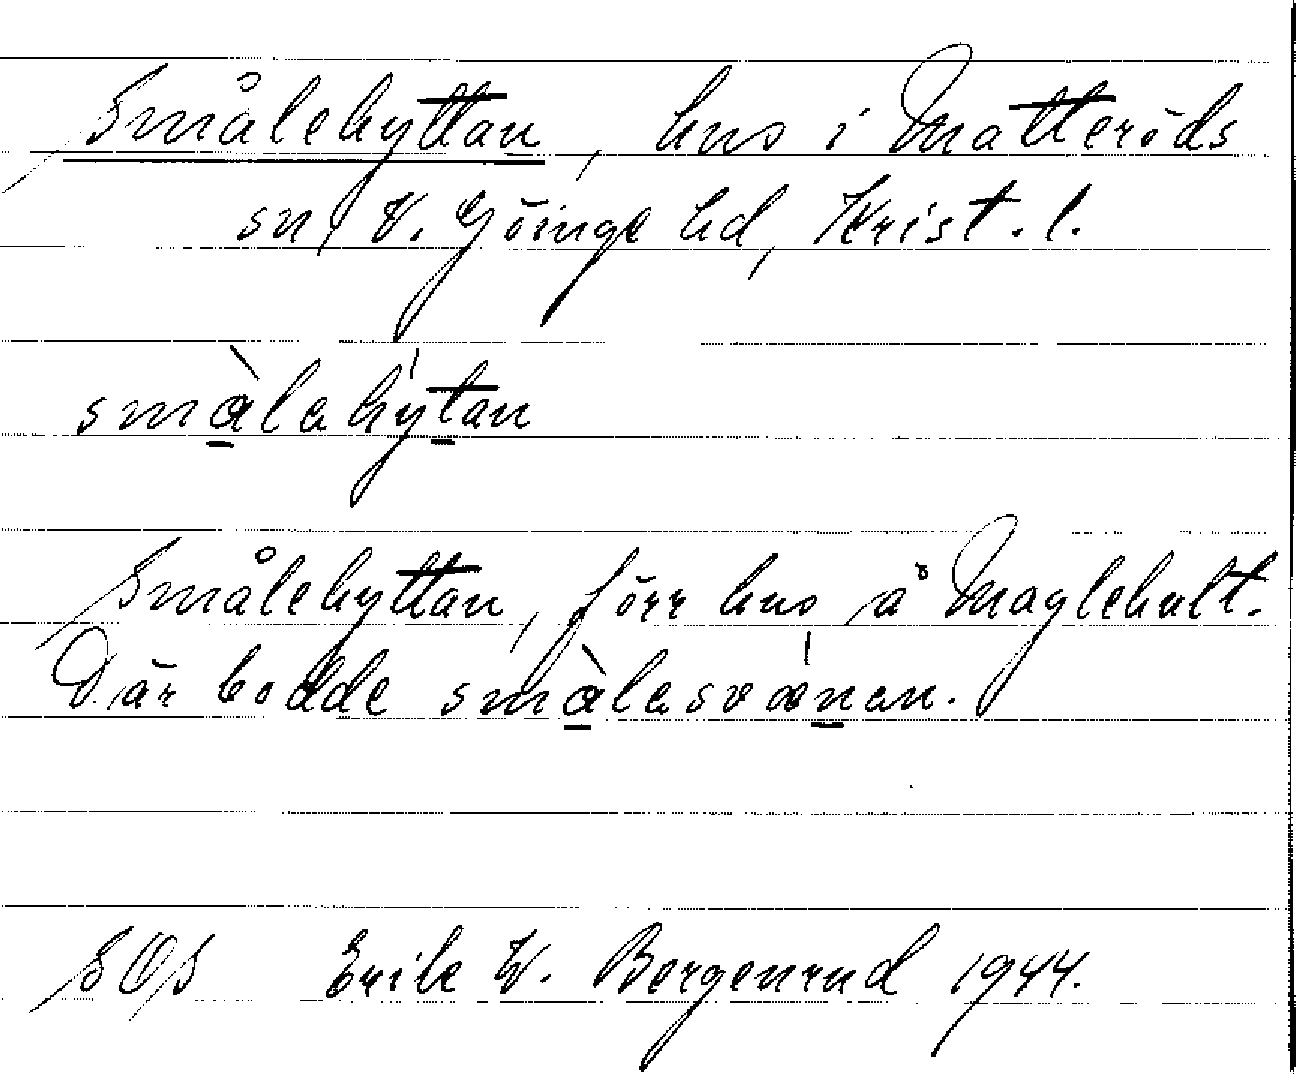 Smålehyttan, hus i Matteröds
sn, V. Göinge hd, Krist. l.
smàlahýtan
Smålehyttan, förr hus å Maglehult.
Där bodde smàlasvænen.
SOS Erik W. Borgenrud 1944.